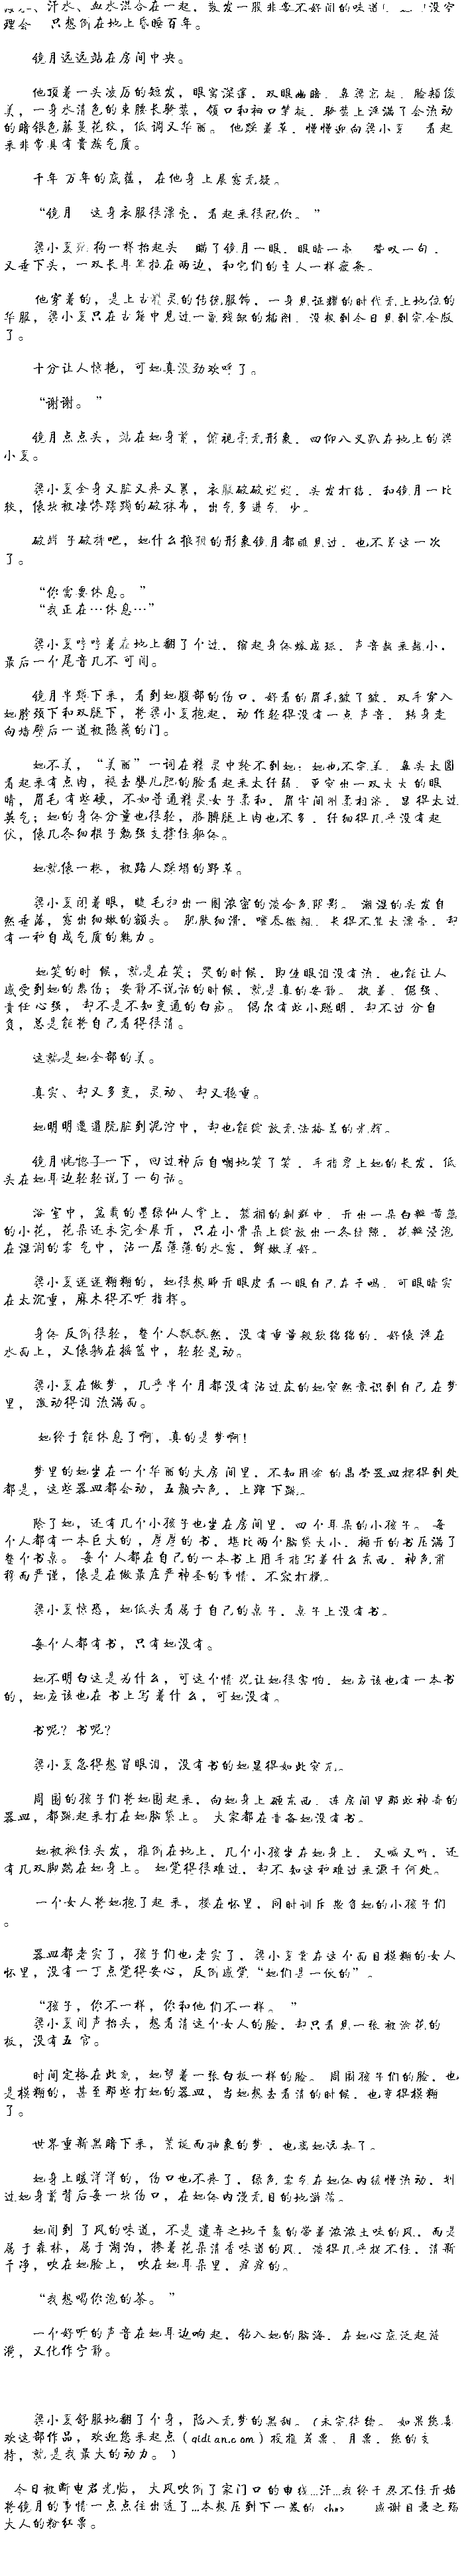 汗水、血水混合在一起，散发一股非常不好闻的味道
理会 只想倒在地上昏睡百年。
镜月远远站在房间中央。
他顶着一头凌厉的短发，眼窝深邃，双眼幽暗，鼻梁高挺，脸颊俊
美，一身水清色的束腰长袍装，领口和袖口笔挺，胸装上浮满了会流动
的暗银色藤蔓花纹，低调又华丽。他踩着草，慢慢迎向梁小夏 看起
来非常具有贵族气质。
千年万年的底蕴，在他身上展露无疑。
“镜月 这身衣服很漂亮，看起来很配你。”
梁小夏死狗一样抬起头 瞄了镜月一眼，眼睛一亮 赞叹一句，
又垂下头，一双长耳垂拉在两边，和它们的主人一样疲惫。
他穿着的，是上古精灵的传统服饰，一身见证耀的时代无上地位的
华服，梁小夏只在古籍中见过一副残缺的插图，没想到今日见到完全版
了。
十分让人惊艳，可她真没劲欢呼了。
“谢谢。”
镜月点点头，站在她身前，俯视毫无形象，四仰八叉趴在地上的梁
小夏。
梁小夏全身又脏又疼又累，衣服破破烂烂，头发打结，和镜月一比
较，像块被凄惨蹂躏的破抹布，出气多进气少。
破罐子破摔吧，她什么狼狈的形象镜月都瞧见过，也不差这一次
了。
“你需要休息。”
“我正在…休息…”
梁小夏哼哼着在地上翻了个过，缩起身体蜷成球，声音越来越小，
最后一个尾音几不可闻。
镜月半蹲下来，看到她腹部的伤口，好看的眉毛皱了皱，双手穿入
她脖颈下和双腿下，将梁小夏抱起，动作轻得没有一点声音，转身走
向墙壁后一道被隐藏的门。
她不美，“美丽”一词在精灵中轮不到她；她也不完美，鼻头太圆
看起来有点肉，褪去婴儿肥的脸看起来太纤弱，更突出一双大大的眼
睛，眉毛有些硬，不如普通精灵女子柔和，眉宇间刚柔相济，显得太过
英气；她的身体分量也很轻，胳膊腿上肉也不多，纤细得几乎没有起
伏，像几条细棍子勉强支撑住躯体。
她就像一株，被路人踩塌的野草。
梁小夏闭着眼，睫毛扫出一圈浓密的淡合色阴影。潮湿的头发自
然垂落，露出细嫩的额头。肌肤细滑，嘴唇微翘，长得不算太漂亮，却
有一种自成气质的魅力。
她笑的时候，就是在笑；哭的时候，即使眼泪没有流，也能让人
感受到她的悲伤；安静不说话的时候，就是真的安静。执着、倔强、
责任心强，却不是不知变通的白痴。偶尔有些小聪明，却不过分自
负，总是能将自己看得很清。
这就是她全部的美。
真实、却又多变，灵动、却又稳重。
她明明邋遢脏到泥泞中，却也能绽放无法掩盖的光辉。
镜月恍惚了一下，回过神后自嘲地笑了笑，手指碧上她的长发，低
头在她耳边轻轻说了一句话。
浴室中，盆栽的墨绿仙人掌上，浓稠的刺群中，开出一朵白瓣黄蕊
的小花，花朵还未完全展开，只在小骨朵上绽放出一条缝隙，花瓣浸泡
在湿润的雾气中，沾一层薄薄的水露，鲜嫩美好。
梁小夏迷迷糊糊的，她很想睁开眼皮看一眼自己在干嘛，可眼睛实
在太沉重，麻木得不听指挥。
身体反倒很轻，整个人飘飘然，没有重量般软绵绵的，好像浮在
水面上，又像躺在摇篮中，轻轻晃动。
梁小夏在做梦，几乎半个月都没有沾过床的她突然意识到自己在梦
里，激动得泪流满面。
她终于能休息了啊，真的是梦啊！
梦里的她坐在一个华丽的大房间里，不知用途的晶莹器皿摆得到处
都是，这些器皿都会动，五颜六色，上蹿下跳。
除了她，还有几个小孩子也坐在房间里，四个耳朵的小孩子。每
个人都有一本巨大的，厚厚的书，堪比两个脑袋大小，摊开的书压满了
整个书桌。每个人都在自己的一本书上用手指写着什么东西，神色肃
穆而严谨，像是在做最庄严神圣的事情，不容打扰。
梁小夏惊恐，她低头看属于自己的桌子，桌子上没有书。
每个人都有书，只有她没有。
她不明白这是为什么，可这个情况让她很害怕。她应该也有一本书
的，她应该也在书上写着什么，可她没有。
书呢？书呢？
梁小夏急得想冒眼泪，没有书的她显得如此突兀。
周围的孩子们将她围起来，向她身上砸东西，连房间里那些神奇的
器皿，都跳起来打在她脑袋上。大家都在责备她没有书。
她被揪住头发，推倒在地上，几个小孩坐在她身上，又喊又叫，还
有几双脚踢在她身上。她觉得很难过，却不知这种难过来源于何处。
一个女人将她抱了起来，搂在怀里，同时训斥欺负她的小孩子们
。
器皿都老实了，孩子们也老实了，梁小夏贴在这个面目模糊的女人
怀里，没有一丁点觉得安心，反倒感觉“她们是一伙的”。
“孩子，你不一样，你和他们不一样。”
梁小夏闻声抬头，想看清这个女人的脸，却只看见一张被涂花的
板，没有五官。
时间定格在此刻，她望着一张白板一样的脸。周围孩子们的脸，也
是模糊的，甚至那些打她的器皿，当她想去看清的时候，也变得模糊
了。
世界重新黑暗下来，荒诞而抽象的梦，也离她远去了。
她身上暖洋洋的，伤口也不疼了，绿色雾气在她体内缓慢流动，划
过她身前背后每一块伤口，在她体内漫无目的地游荡。
她闻到了风的味道，不是遗弃之地干燥的带着浓浓土味的风，而是
属于森林，属于湖泊，掺着花朵清香味道的风，淡得几乎摸不住，清新
干净，吹在她脸上，吹在她耳朵里，痒痒的。
“我想喝你泡的茶。”
一个好听的声音在她耳边响起，钻入她的脑海，在她心底泛起涟
漪，又化作宁静。
梁小夏舒服地翻了个身，陷入无梦的黑甜。（未完待续。如果您喜
欢这部作品，欢迎您来起点（qidian.com）投推荐票、月票，您的支
持，就是我最大的动力。）
今日被断电君光临，大风吹倒了家门口的电线...汗...我终于忍不住开始
将镜月的事情一点点往出透了...本想压到下一卷的 感谢目暮之殇
大人的粉红票。